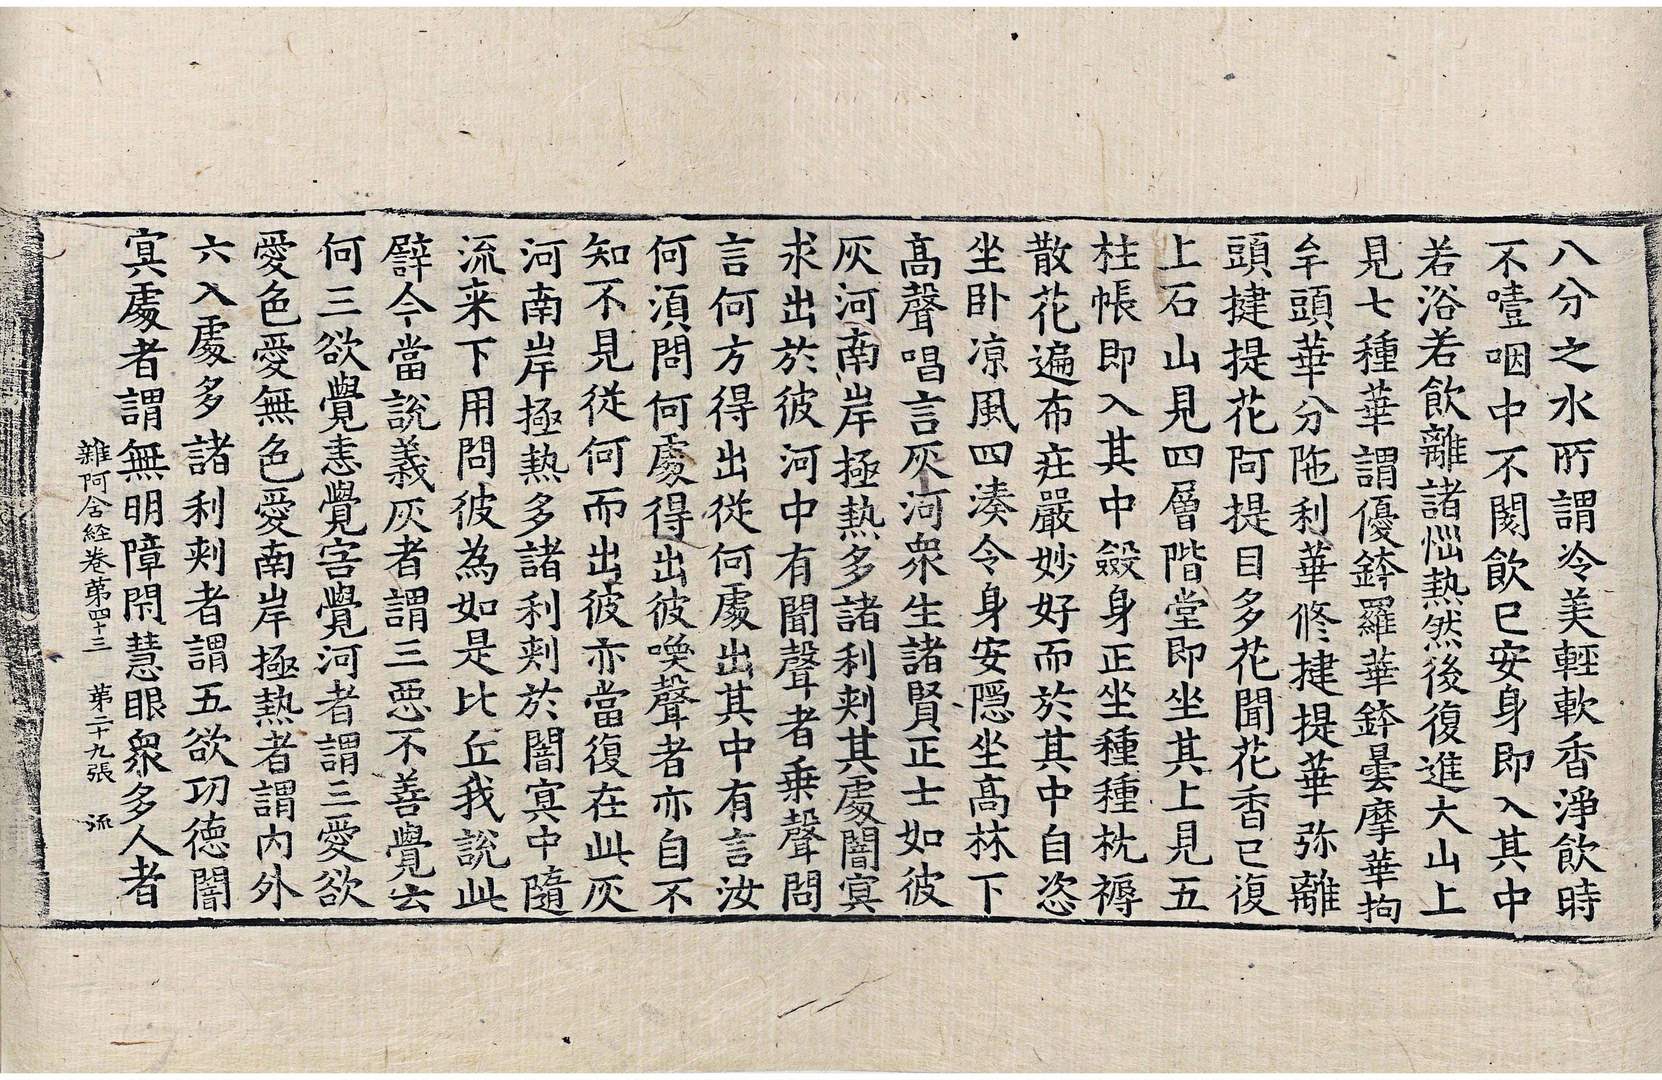 八分之水所謂冷美輕軟香淨飲時
不噎咽中不閡飲已安身即入其中
若浴若飲離諸惱熱然後復進大山上
見七種華謂優鉢羅華鉢曇摩華拘
牟頭華分陁利華修揵提華弥離
頭揵提花阿提目多花聞花香已復
上石山見四層階堂即坐其上見五
柱帳即入其中斂身正坐種種枕褥
散花遍布莊嚴妙好而於其中自恣
坐卧凉風四湊令身安隱坐高林下
高聲唱言灰河衆生諸賢正士如彼
灰河南岸極熱多諸利刾其處闇冥
求出於彼河中有聞聲者乗聲問
言何方得出從何處出其中有言汝
何須問何處得出彼喚聲者亦自不
知不見從何而出彼亦當復在此灰
河南岸極熱多諸利刾於闇冥中隨
流来下用問彼為如是比丘我說此
譬今當說義灰者謂三惡不善覺云
何三欲覺恚覺害覺河者謂三愛欲
愛色愛無色愛南岸極熱者謂内外
六入處多諸利刾者謂五欲功德闇
冥處者謂無明障閇慧眼衆多人者
雜阿含経卷第四十三 第二十九張 流